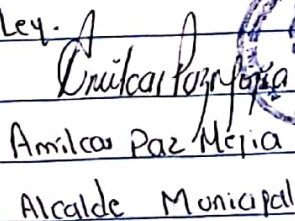 Ley.
Amilcar Paz Mejia
Amilcar Paz Mejia
Alcalde Municipal